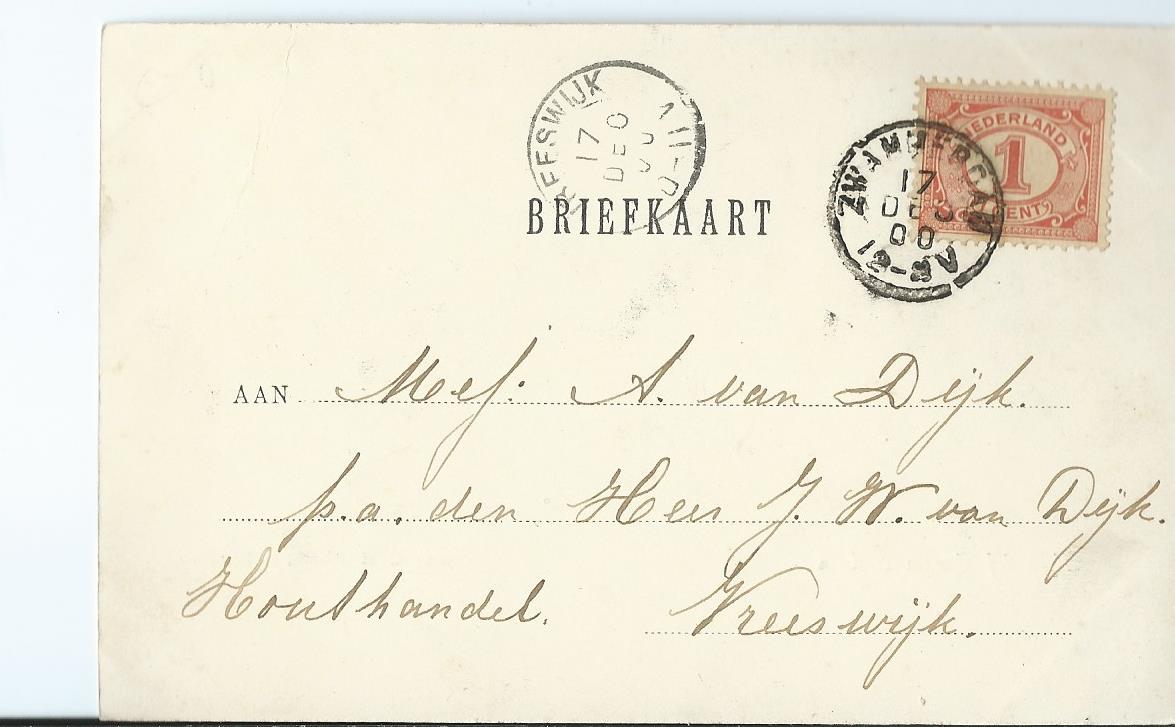 EESWIJK
17
DEC
BRIEFKAART
NEDERLAND
1
CENT
ZWAMMERDAM
17
DEC
00
12-2V
AAN Mej. A. van Dijk.
p.a. den Heer J. W. van Dijk.
Houthandel. Vreeswijk.